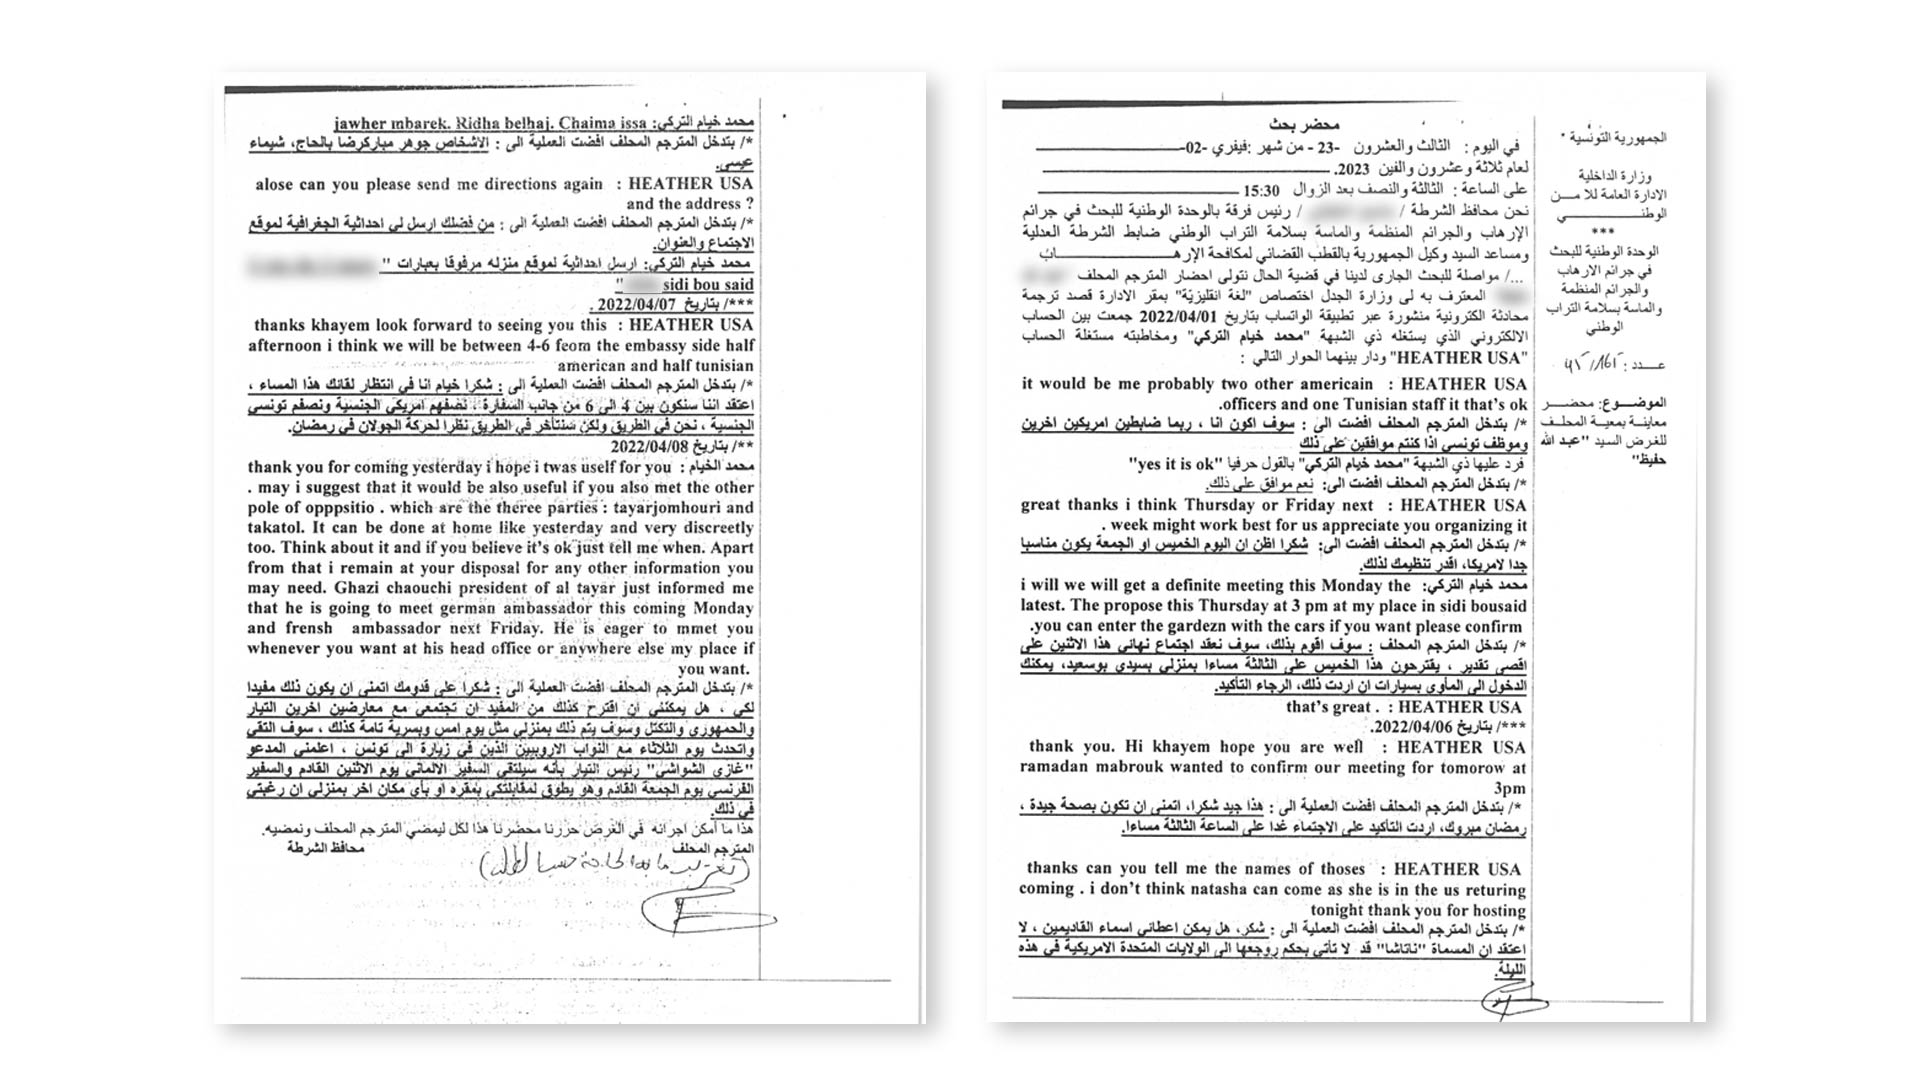 الجمهورية التونسية *
وزارة الداخلية
الادارة العامة للامـــن
الوطنــــــــــي
***
الوحدة الوطنية للبحث
في جرائم الارهاب
والجرائم المنظمة
والماسة بسلامة التراب
الوطني
عـــدد :
الموضـــوع: محضـــر
معاينة بمعية المحلـف
للغرض السيد "عبد الله
حفيظ"
محضر بحث
في اليوم : الثالث والعشرون -23 - من شهر :فيفري -02-
لعام ثلاثة وعشرون والفين 2023.
على الساعة : الثالثة والنصف بعد الزوال 15:30
نحن محافظ الشرطة / / رئيس فرقة بالوحدة الوطنية للبحث في جرائم
الإرهاب والجرائم المنظمة والماسة بسلامة التراب الوطني ضابط الشرطة العدلية
ومساعد السيد وكيل الجمهورية بالقطب القضائي لمكافحة الإرهــــــــاب
.../ مواصلة للبحث الجارى لدينا في قضية الحال نتولى احضار المترجم المحلف
المعترف به لى وزارة الجدل اختصاص "لغة انقليزيّة" بمقر الادارة قصد ترجمة
محادثة الكترونية منشورة عبر تطبيقة الواتساب بتاريخ 2022/04/01 جمعت بين الحساب
الالكتروني الذي يستغله ذي الشبهة "محمد خيام التركي" ومخاطبته مستغلة الحساب
"HEATHER USA" ودار بينهما الحوار التالي :
it would be me probably two other americain : HEATHER USA
.officers and one Tunisian staff it that's ok
*/ بتدخل المترجم المحلف افضت العملية الى : سوف اكون انا ، ربما ضابطين امريكين اخرين
وموظف تونسي اذا كنتم موافقين على ذلك
فرد عليها ذي الشبهة "محمد خيام التركي" بالقول حرفيا "yes it is ok"
*/ بتدخل المترجم المحلف افضت الى: نعم موافق على ذلك.
great thanks i think Thursday or Friday next : HEATHER USA
. week might work best for us appreciate you organizing it
*/ بتدخل المترجم المحلف افضت الى: شكرا اظن ان اليوم الخميس او الجمعة يكون مناسبا
جدا لامريكا، اقدر تنظيمك لذلك.
i will we will get a definite meeting this Monday the :محمد خيام التركي
latest. The propose this Thursday at 3 pm at my place in sidi bousaid
.you can enter the gardezn with the cars if you want please confirm
*/ بتدخل المترجم المحلف : سوف اقوم بذلك، سوف نعقد اجتماع نهائي هذا الاثنين على
اقصى تقدير ، يقترحون هذا الخميس على الثالثة مساءا بمنزلي بسيدي بوسعيد، يمكنك
الدخول الى المأوى بسيارات ان اردت ذلك، الرجاء التأكيد.
that's great . : HEATHER USA
***/ بتاريخ 2022/04/06.
thank you. Hi khayem hope you are well : HEATHER USA
ramadan mabrouk wanted to confirm our meeting for tomorow at
3pm
*/ بتدخل المترجم المحلف افضت العملية الى : هذا جيد شكرا، اتمنى ان تكون بصحة جيدة ،
رمضان مبروك، اردت التأكيد على الاجتماع غدا على الساعة الثالثة مساءا.
thanks can you tell me the names of thoses : HEATHER USA
coming . i don't think natasha can come as she is in the us returing
tonight thank you for hosting
*/ بتدخل المترجم المحلف افضت العملية الى : شكر، هل يمكن اعطائي اسماء القاديمين ، لا
اعتقد ان المسماة "ناتاشا" قد لا تأتي بحكم روجعها الى الولايات المتحدة الامريكية في هذه
الليلة.
jawher mbarek. Ridha belhaj. Chaima issa :محمد خيام التركي
*/ بتدخل المترجم المحلف افضت العملية الى : الاشخاص جوهر مباركرضا بالحاج، شيماء
عيسى.
alose can you please send me directions again : HEATHER USA
and the address ?
*/ بتدخل المترجم المحلف افضت العملية الى : من فضلك ارسل لي احداثية الجغرافية لموقع
الاجتماع والعنوان.
محمد خيام التركي: ارسل احداثية لموقع منزله مرفوقا بعبارات "
sidi bou said"
***/ بتاريخ 2022/04/07 .
thanks khayem look forward to seeing you this : HEATHER USA
afternoon i think we will be between 4-6 feom the embassy side half
american and half tunisian
*/ بتدخل المترجم المحلف افضت العملية الى : شكرا خيام انا في انتظار لقائك هذا المساء ،
اعتقد اننا سنكون بين 4 الى 6 من جانب السفارة ، نصفهم امريكي الجنسية ونصفهم تونسي
الجنسية ، نحن في الطريق ولكن سنتأخر في الطريق نظرا لحركة الجولان في رمضان.
**/ بتاريخ 2022/04/08
thank you for coming yesterday i hope i twas uself for you : محمد الخيام
. may i suggest that it would be also useful if you also met the other
pole of opppsitio . which are the theree parties : tayarjomhouri and
takatol. It can be done at home like yesterday and very discreetly
too. Think about it and if you believe it's ok just tell me when. Apart
from that i remain at your disposal for any other information you
may need. Ghazi chaouchi president of al tayar just informed me
that he is going to meet german ambassador this coming Monday
and frensh ambassador next Friday. He is eager to mmet you
whenever you want at his head office or anywhere else my place if
you want.
*/ بتدخل المترجم المحلف افضت العملية الى : شكرا على قدومك اتمنى ان يكون ذلك مفيدا
لكي ، هل يمكنني ان اقترح كذلك من المفيد ان تجتمعي مع معارضين اخرين التيار
والجمهوري والتكتل وسوف يتم ذلك بمنزلي مثل يوم امس وبسرية تامة كذلك ، سوف التقي
واتحدث يوم الثلاثاء مع النواب الاروبيين الذين في زيارة الى تونس ، اعلمني المدعو
"غازي الشواشي" رئيس التيار بأنه سيلتقي السفير الالماني يوم الاثنين القادم والسفير
الفرنسي يوم الجمعة القادم وهو يطوق لمقابلتكي بمقره او بأي مكان اخر بمنزلي ان رغبتي
في ذلك.
هذا ما أمكن اجرائه في الغرض حررنا محضرنا هذا لكل ليمضي المترجم المحلف ونمضيه.
المترجم المحلف محافظ الشرطة